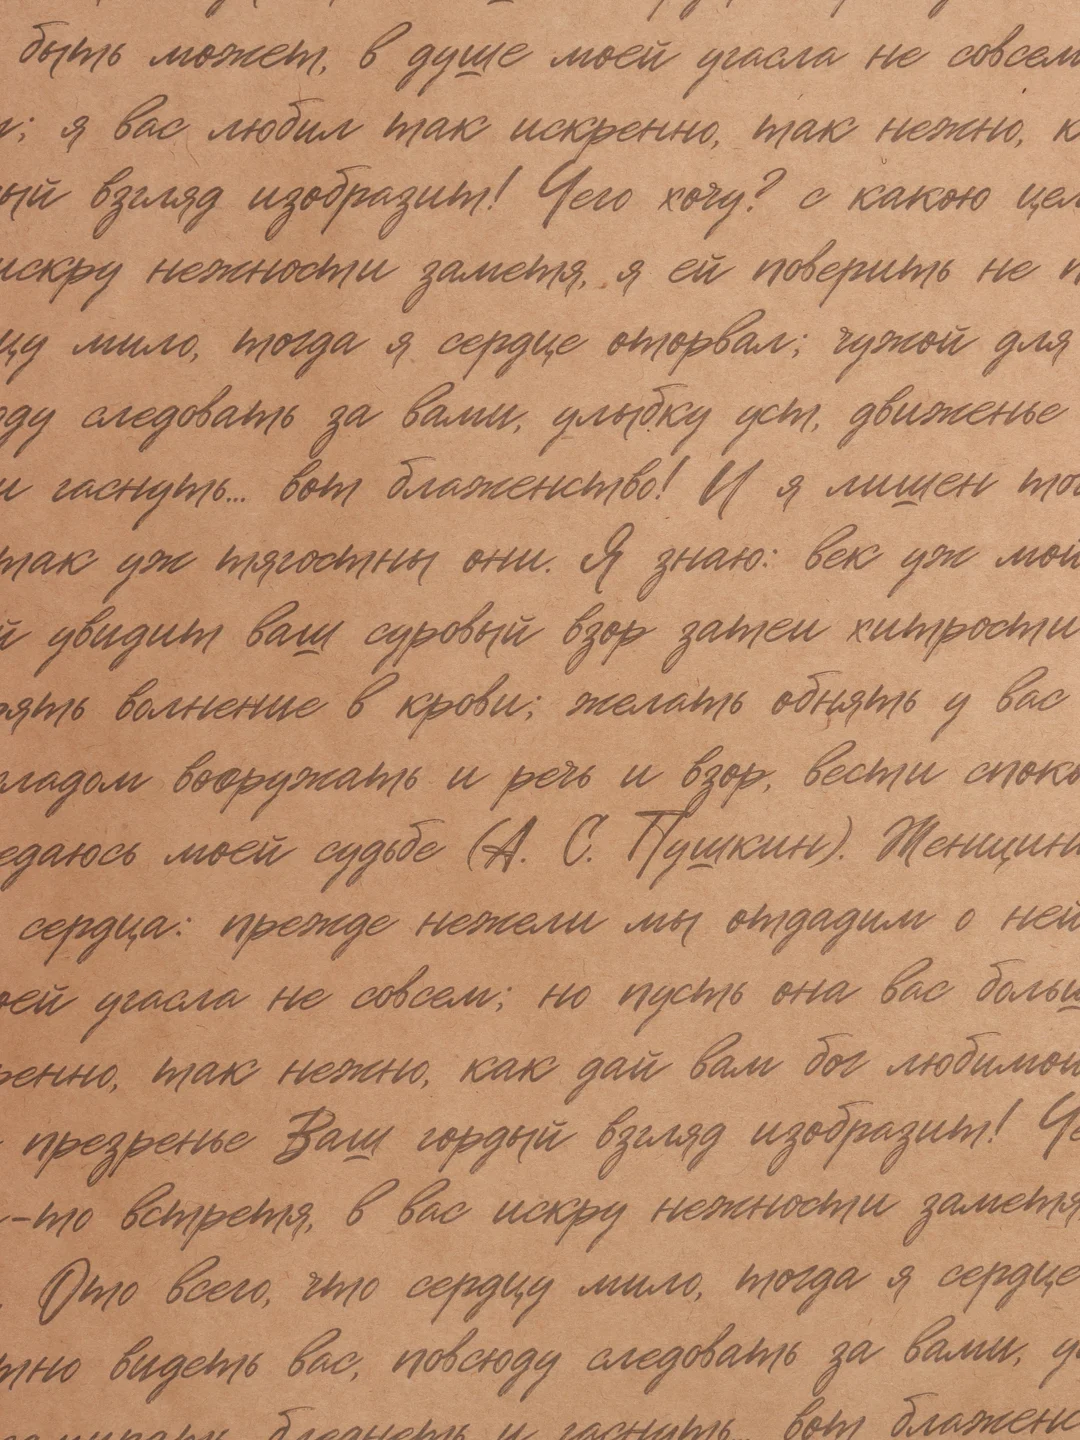 быть может, в душе моей угасла не совсем
; я вас любил так искренно, так нежно, к
ый взгляд изобразит! Чего хочу? с какою цел
искру нежности заметя, я ей поверить не п
цу мило, тогда я сердце оторвал; чужой для
ду следовать за вами, улыбку уст, движенье
и гаснуть... вот блаженство! И я лишен тог
так уж тягостны они. Я знаю: век уж мой
й увидит ваш суровый взор затеи хитрости
ять волнение в крови; желать обнять у вас
ладом вооружать и речь и взор, вести споко
едаюсь моей судьбе (А. С. Пушкин). Женщин
сердца: прежде нежели мы отдадим о ней
оей угасла не совсем; но пусть она вас больш
ренно, так нежно, как дай вам бог любимой
презренье Ваш гордый взгляд изобразит! Че
-то встретя, в вас искру нежности заметя
Ото всего, что сердцу мило, тогда я сердце
тно видеть вас, повсюду следовать за вами, у
замирать, бледнеть и гаснуть... вот блаженс